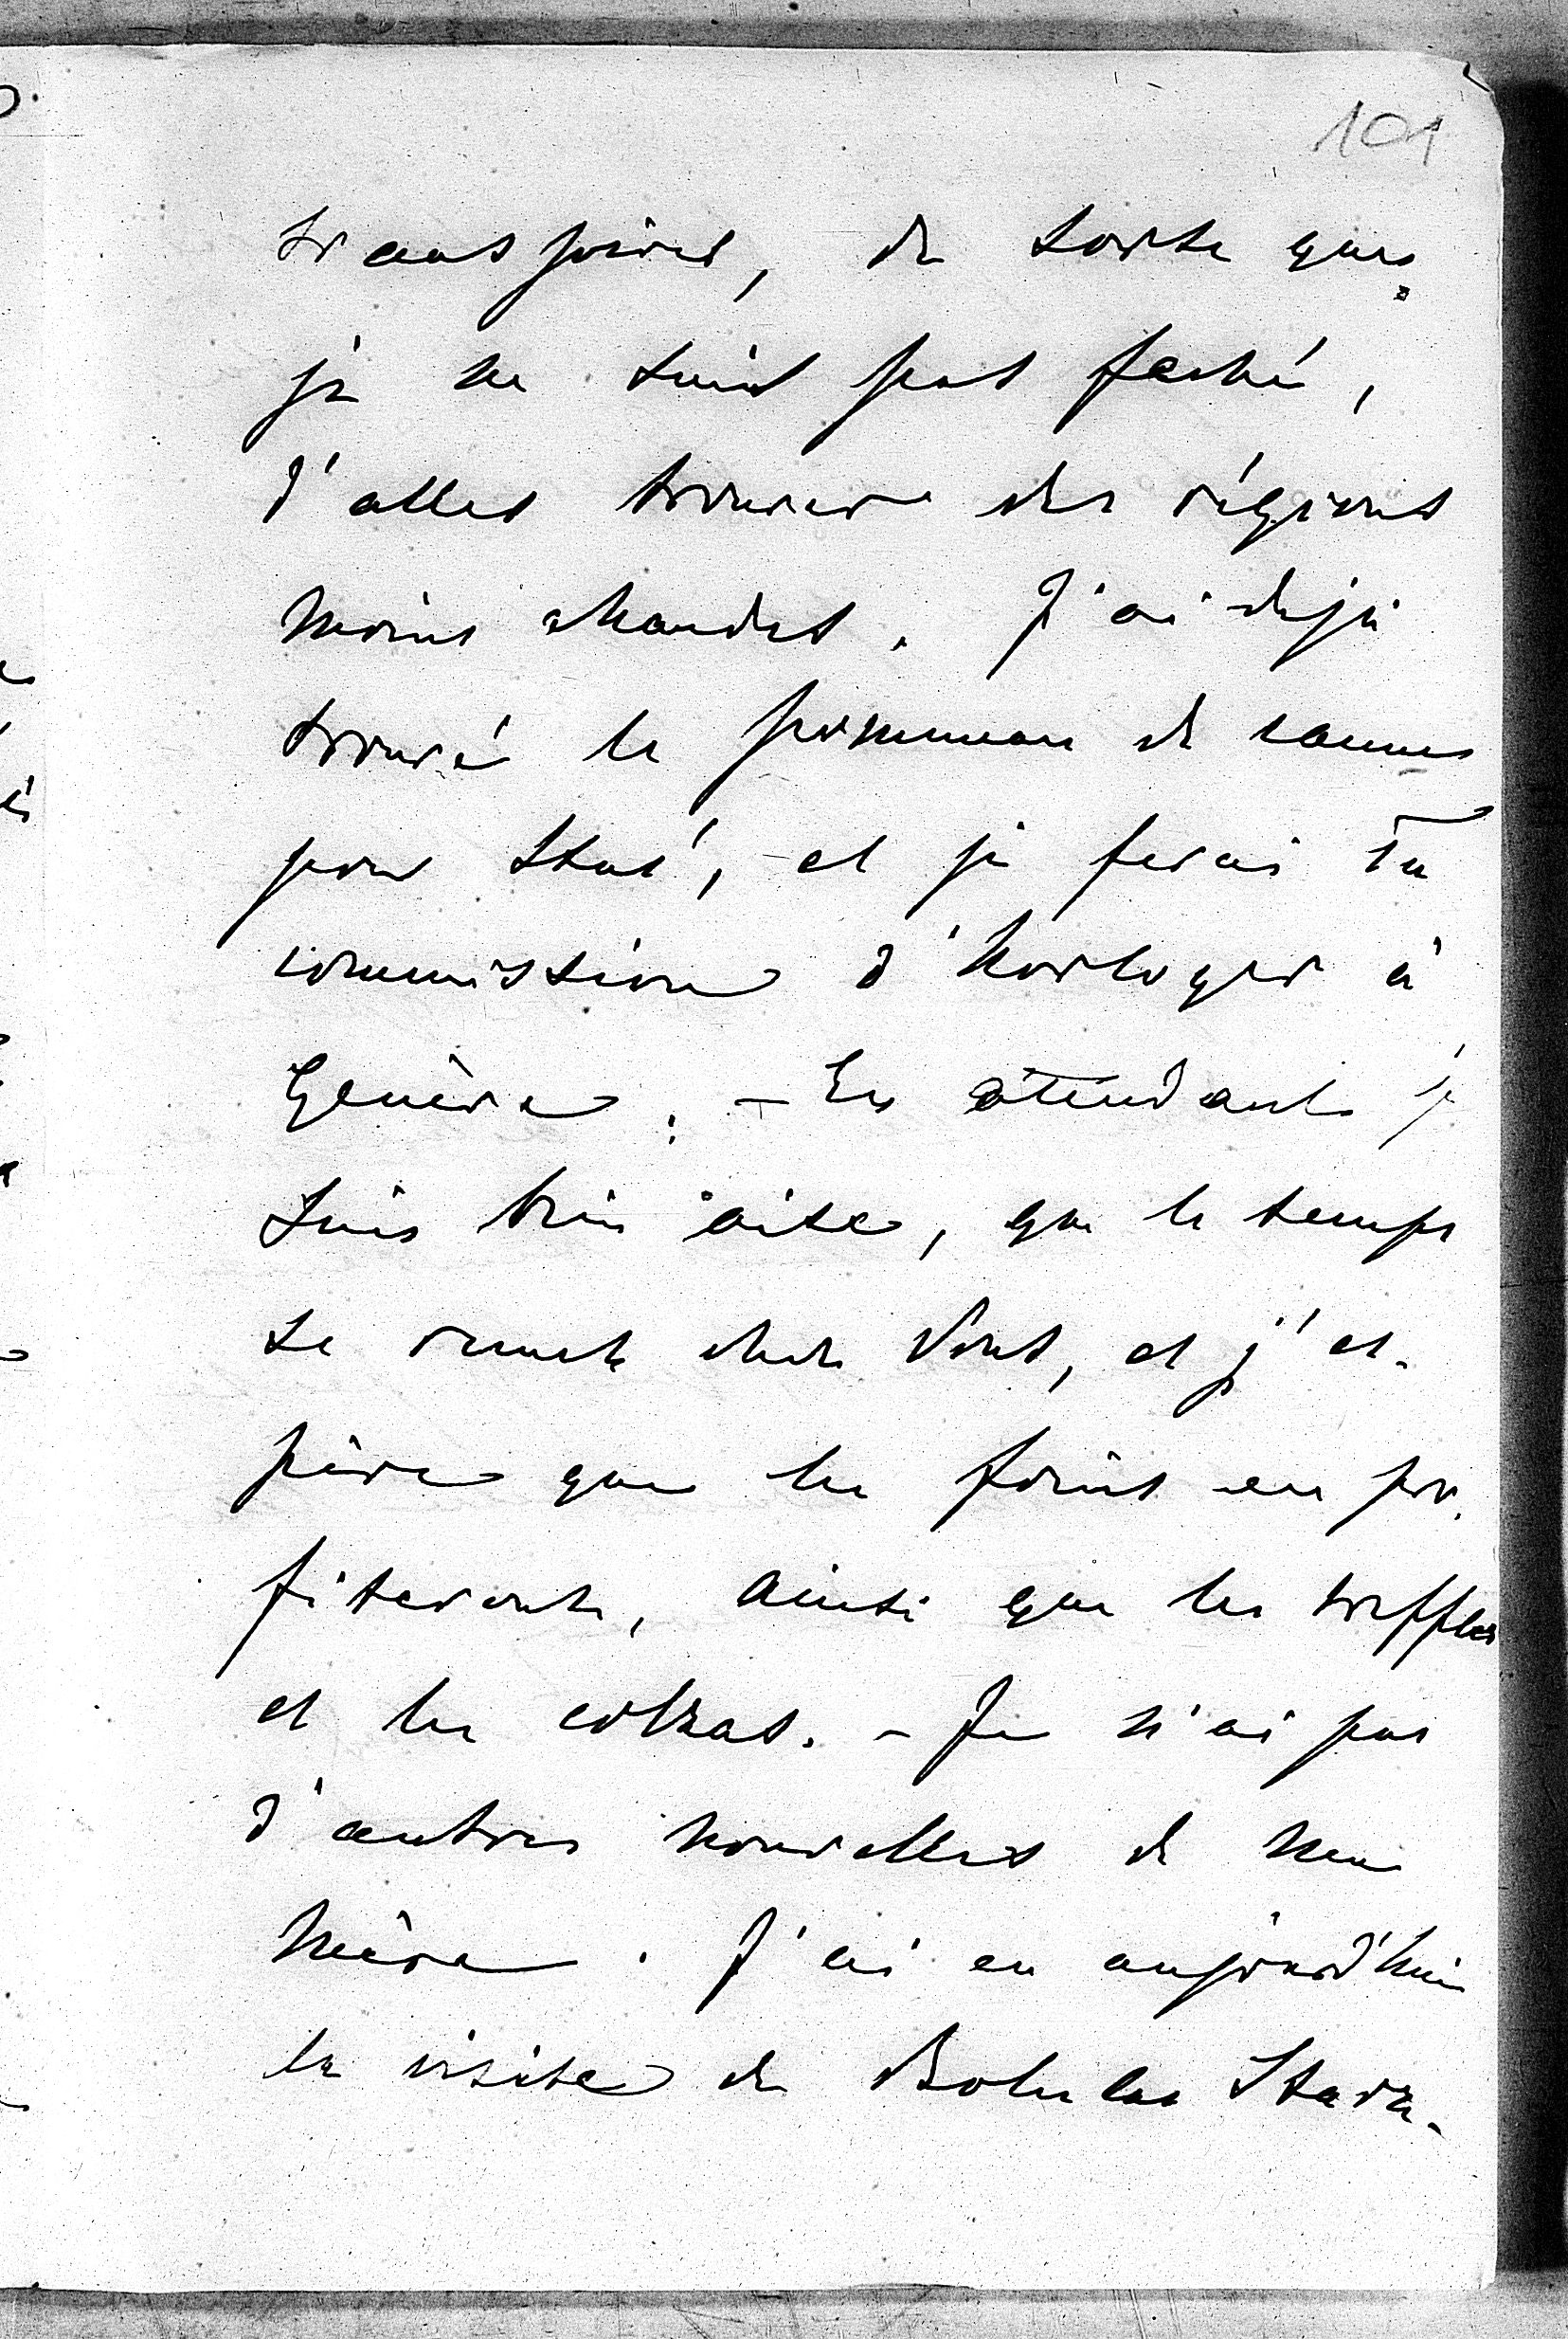 101
transpirer, de sorte que
je ne suis pas faché,
d'aller trouver des régions
moins chaudes. J'ai deja
trouvé le pommeau de canne
pour Stas', et je ferai ta
commission d'horloger à
Genève. – En attendant je
suis bien aise, que le temps
se remet chez Vous, et j'es-
père que les foins en pro-
fiteront, ainsi que les treffles
et les colzas. – Je n'ai pas
d'autres nouvelles de ma
mère. J'ai eu aujourd'hui
la visite de Boleslas Starz-